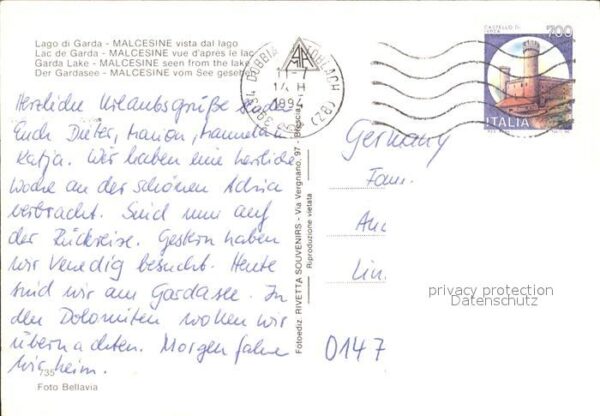 Lago di Garda - MALCESINE vista dal lago
Lac de Garda - MALCESINE vue d'après le lac
Garda Lake - MALCESINE seen from the lake
Der Gardasee - MALCESINE vom See gesehen
39034 DOBBIACO TOBLACH (BZ)
11-7
14 H
1994
CASTELLO DI
700
ITALIA
Herzliche Urlaubsgrüße
Euch Dieter, Marion, Manuela
Katja. Wir haben eine herrliche
Woche an der schönen Adria
verbracht. Sind nun auf
der Rückreise. Gestern haben
wir Venedig besucht. Heute
sind wir am Gardasee. In
den Dolomiten wollen wir
übernachten. Morgen fahren
wir heim.
735
Foto Bellavia
Fotoediz. RIVETTA SOUVENIRS - Via Vergnano, 97 - Brescia
Riproduzione vietata
Germany
Fam.
An
Lin
0147
privacy protection
Datenschutz